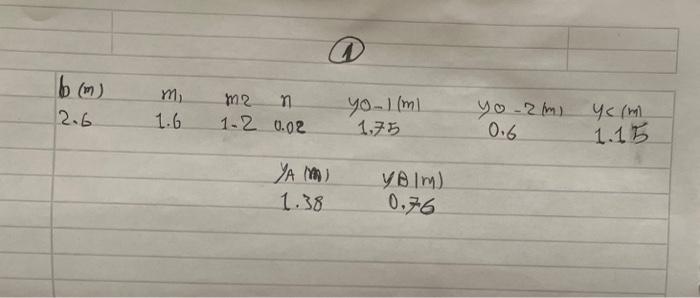 1
b (m) m1 m2 n yo-1 (m) yo-2 (m) yc (m)
2.6 1.6 1.2 0.02 1.75 0.6 1.15
yA (m) yB (m)
1.38 0.76